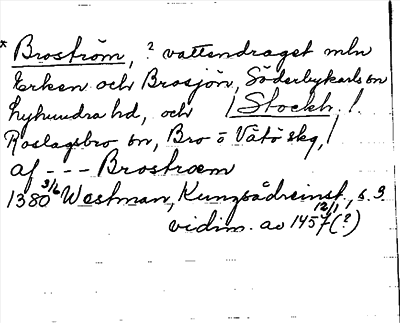 * Broström, ? vattendraget mln
Erken och Brosjön, Söderbykarls sn
Lyhundra hd, och / Stockh. /.
Roslagsbro sn, Bro o Vätö skg, /
af --- Brostroem
1380 3/6 Westman, Kungsådreinst., s. 3.
vidim. av 1457 12/1 (?)